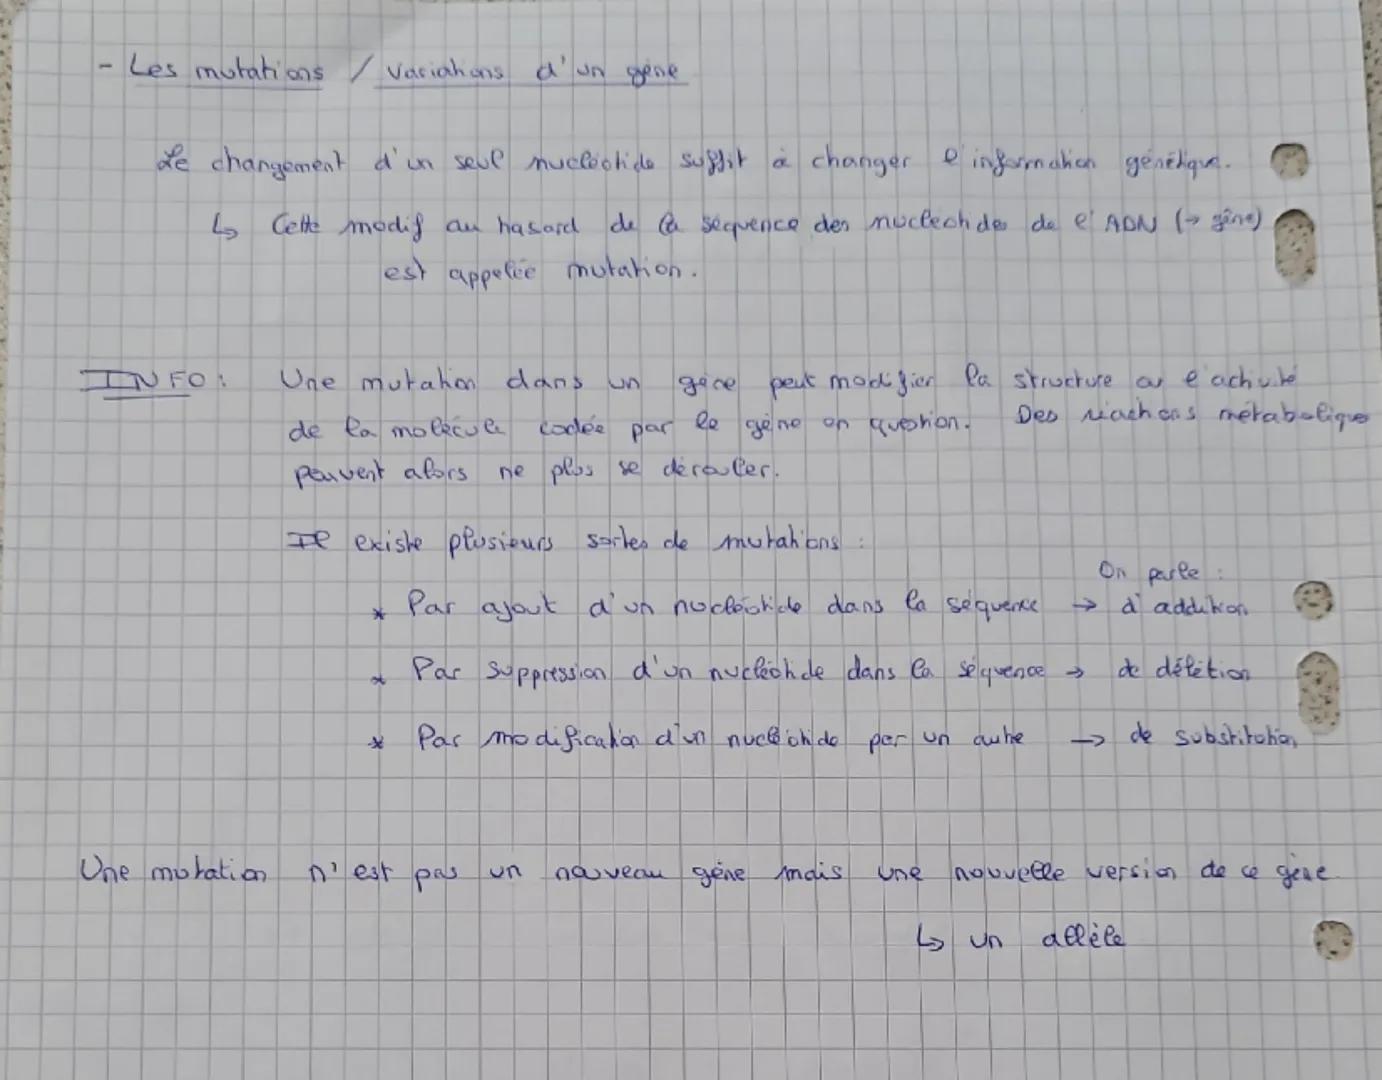 - Les mutations / variations d'un gène
Le changement d'un seul nucléotide suffit à changer l'information génétique.
↳ Cette modif au hasard de la séquence des nucléotides de l'ADN (→ gène)
est appelée mutation.
INFO : Une mutation dans un gène peut modifier la structure ou l'activité
de la molécule codée par le gène en question. Des réactions métabolique
peuvent alors ne plus se dérouler.
Il existe plusieurs sortes de mutations :
On parle :
* Par ajout d'un nucléotide dans la séquence → d'addition
* Par suppression d'un nucléotide dans la séquence → de délétion
* Par modification d'un nucléotide par un autre → de substitution
Une mutation n'est pas un nouveau gène mais une nouvelle version de ce gène
↳ un allèle